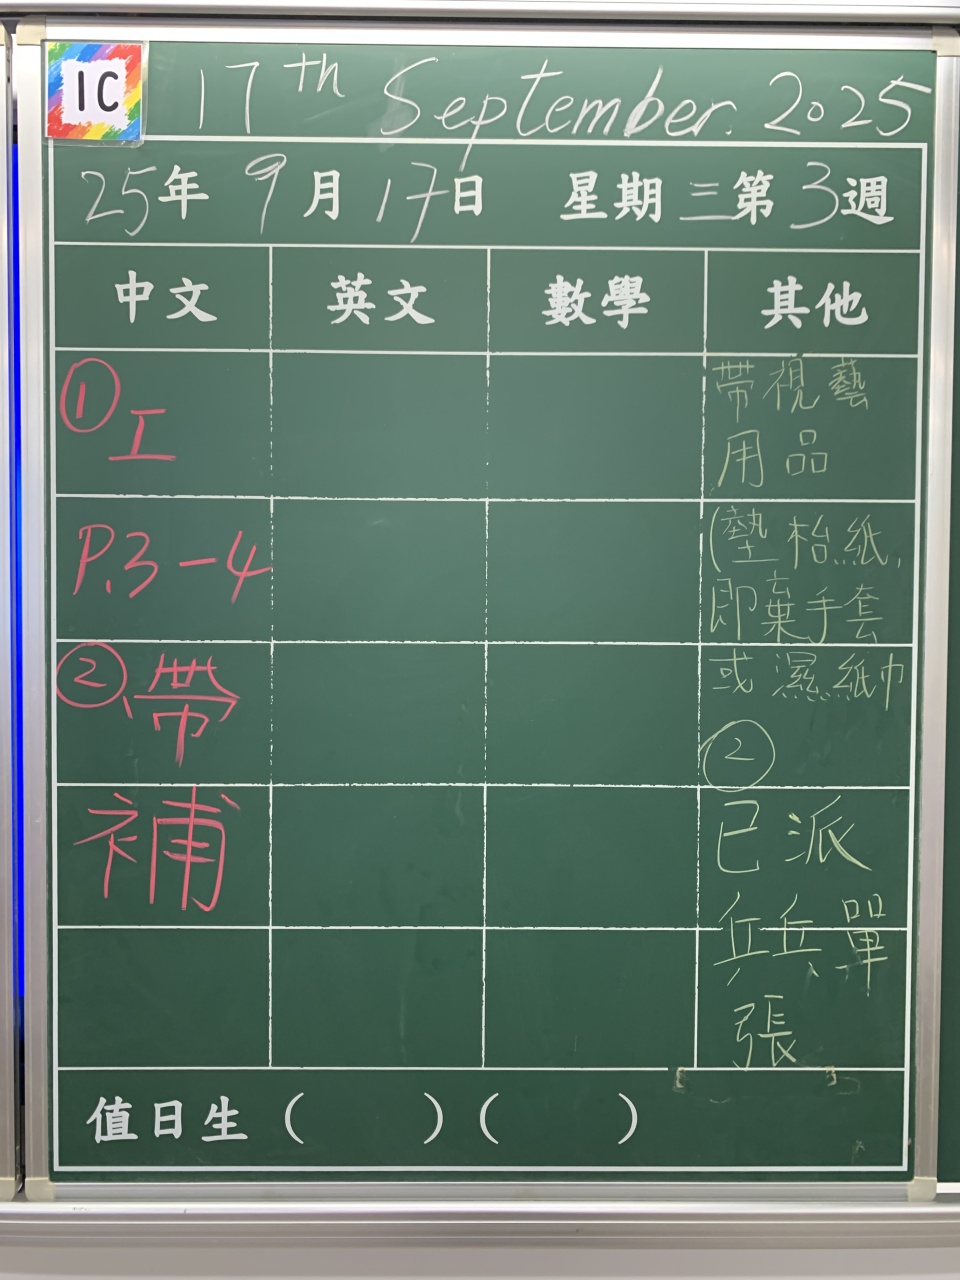 1C
17th September. 2025
25年9月17日 星期三第3週
中文 英文 數學 其他
① 工
P.3-4
② 帶
補
帶視藝
用品
(墊枱紙,
即棄手套
或濕紙巾
②
已派
乒乓單
張
值日生( )( )